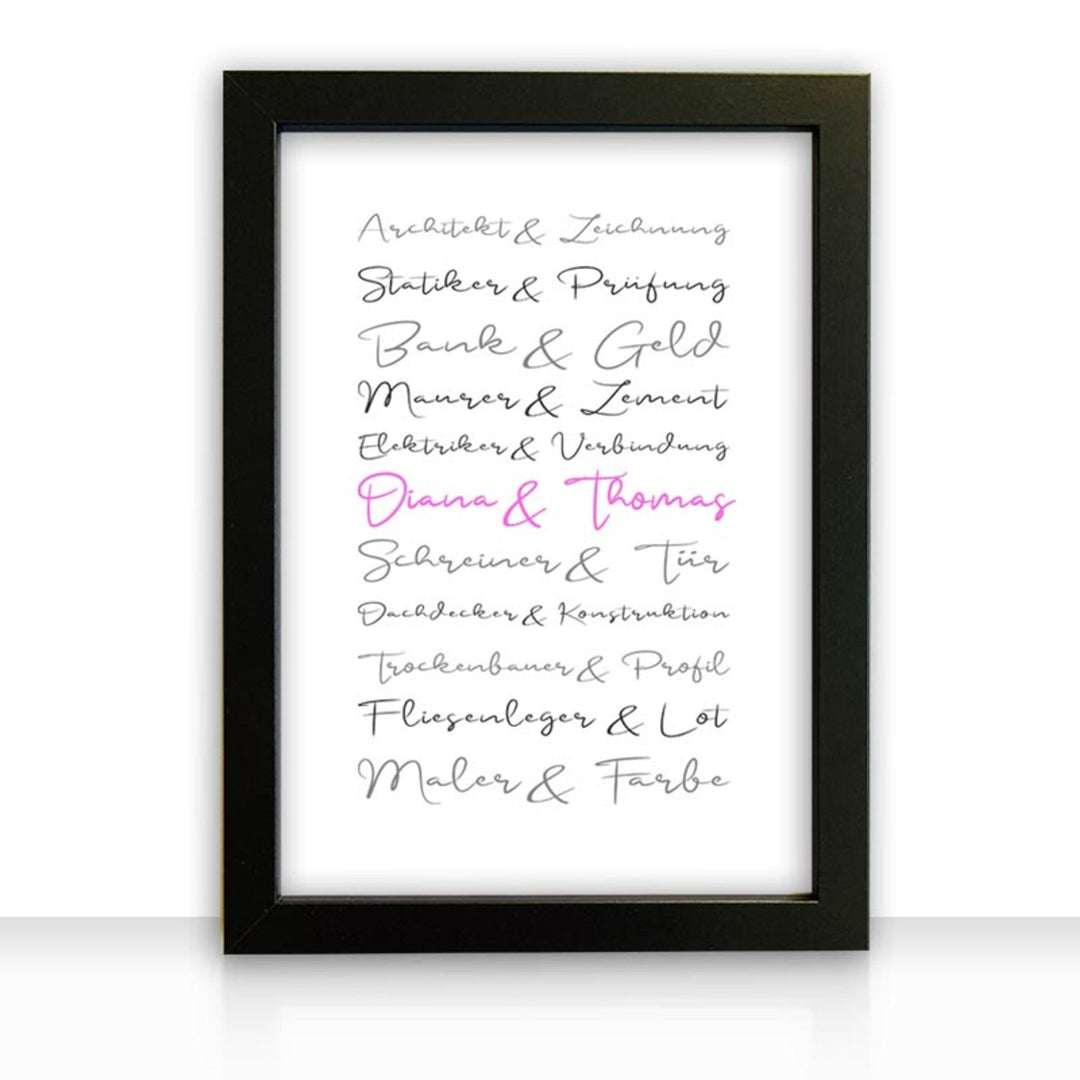 Architekt & Zeichnung
Statiker & Prüfung
Bank & Geld
Maurer & Zement
Elektriker & Verbindung
Diana & Thomas
Schreiner & Tür
Dachdecker & Konstruktion
Trockenbauer & Profil
Fliesenleger & Lot
Maler & Farbe